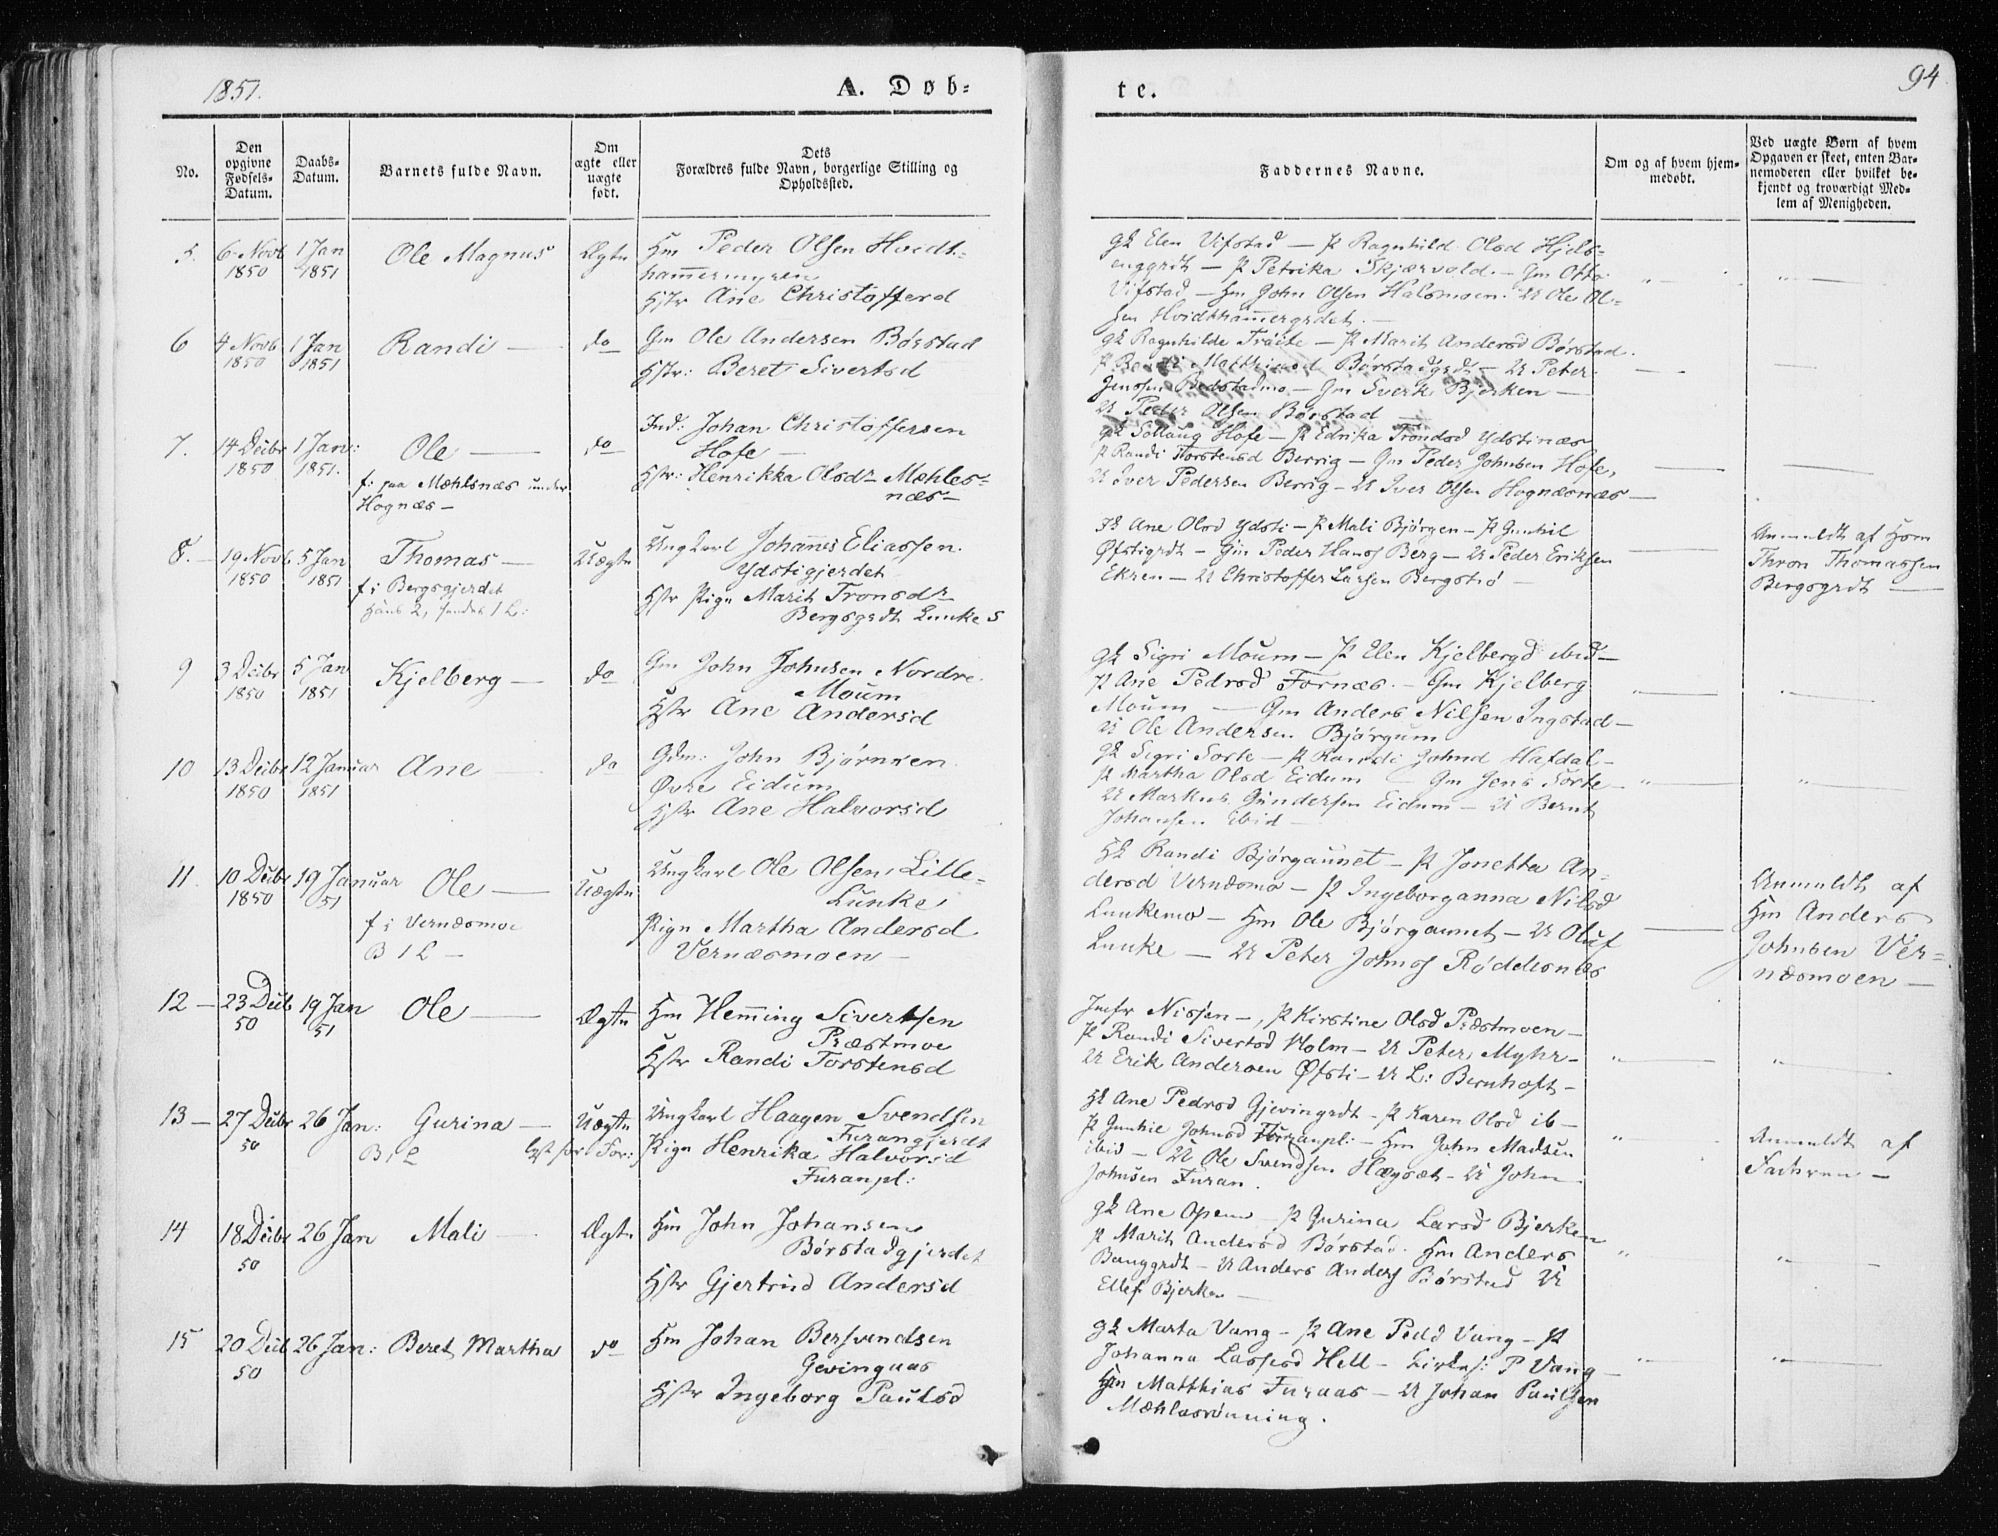 1851.
A. Døb-
te.
94
No.
Den opgivne Fødsels-Datum.
Daabs-Datum.
Barnets fulde Navn.
Om ægte eller uægte født.
Dets Forældres fulde Navn, borgerlige Stilling og Opholdssted.
Faddernes Navne.
Om og af hvem hjem-
medøbt.
Ved uægte Børn af hvem
Opgaven er skeet, enten Bar-
nemoderen eller hvilket be-
kjendt og troværdigt Med-
lem af Menigheden.
5. 6 Novb 1850
1 Jan 1851
Ole Magnus
Ægte
Hm Peder Olsen Hvidt-
hammermyren
Hstr Ane Christofferd
gk Elen Vifstad — P Ragnhild Olsd Hjels-
enggrdt — P Petrika Skjærvold — Gm Otto
Vifstad — Hm John Olsen Halsmoen. U Ole Ol-
sen Hvidthammergrdet. —
6 4 Novb 1850
1 Jan 1851
Randi —
do
Gm Ole Andersen Børstad
Hstr: Beret Sivertsd
gk Ragnhilde Tråite — P Marit Andersd Børstad.
P Børstadgrdt — U Peter
Jenssen — Gm Sverk Bjerken —
U Peder Olsen Børstad —
7. 14 Decbr 1850
1 Jan: 1851.
Ole —
f: paa Mæhlsnæs under
Hognæs —
do
Ind: Johan Christoffersen
Hofe —
Hstr: Henrikka Olsdr Mæhles-
næs —
gk Sollaug Hofe — P Edrika Trondsd Ydstinæs
P Randi Torstensd Berrig — Gm Peder Johnsen Hofe,
U Iver Pedersen Berrig — U Iver Olsen Hognæsnæs —
8. — 19 Novb 1850
5 Jan 1851
Thomas —
f i Bergsgjerdet
Uægte
Ungkarl Johannes Eliassen.
Ydstigjerdet
Pige Marit Tronsdr
Bergsgrdt Lunke
Ane Olsd Ydsti — P Mali Bjørgen — P Gunhil
Øfstigrdt — Gm Peder Hans Berg — U Peder Eriksen
Ekren — U Christoffer Larsen Bergstrø —
Anmeldt af Hsm
Thron Thomassen
Bergsgrdt —
9 3 Decbr 1850
5 Jan 1851
Kjelberg —
do
Gm John Johnsen Nordre
Moum
Hstr Ane Andersd
gk Sigri Moum — P Elen Kjelbergd ibid —
P Ane Pedrsd Fornæs. — Gm Kjelberg
Moum — Gm Anders Nilsen Ingstad —
U Ole Andersen Bjørgum
10 13 Decbr 1850
12 Januar 1851
Ane
do
Gdm: John Bjørnsen
Øvre Eidum
Hstr Ane Halvorsd
gk Sigri Sorte — P Randi Johnd Hafdal —
P Martha Olsd Eidum — Gm Jens Sorte —
U Markus Gundersen Eidum — U Bernt
Johansen ibid —
11. 10 Decbr 1850
19 Januar 51
Ole —
f i Vernæsmoe
B 1 L —
Uægte
Ungkarl Ole Olsen, Lille-
Lunke,
Pige Martha Andersd
Vernæsmoen —
Randi Bjørgaunet — P Jonetta An-
dersd Vernæsmo — P Ingeborganna Nilsd
Lunkemo — Hm Ole Bjørgaunet — U Oluf
Lunke — U Peter Johns Røddesnæs
Anmeldt af
Hm Anders
Johnsen Ver-
næsmoen —
12 — 23 Decb 50
19 Jan 51
Ole —
Ægte
Hm Hemming Sivertsen
Præstmoe
Hstr Randi Torstensd
Jmfr Nissen —, P Kirstine Olsd Præstmoen —
P Randi Sivertsd Holm — U Peter Myhr —
U Erik Andersen Øfsti — U L: Bernhoft —
13 — 27 Decbr 50
26 Jan:
Gurina —
B 1 L
Uægte
Ungkarl Haagen Svendsen
Furangjerdt
Pige Henrika Halvorsd
Furanpl:
Ane Pedrsd Gjevingrdt — P Karen Olsd ib —
P Gunhil Johnsd Furanpl: — Hm John Madsen
ibid — U Ole Svendsen Hægsæt — U John
Johnsen Furan.
Anmeldt af
Faderen —
14 18 Decbr 50
26 Jan
Mali —
Ægte
Hm John Johansen
Børstadgjerdet
Hstr Gjertrud Andersd
gk Ane Opem — P Gurina Larsd Bjerken
P Marit Andersd Børstad. Hm Anders
Banggrdt — U Anders Anders Børstad U
Ellef Bjerken —
15 20 Decb 50
26 Jan:
Beret Martha
do
Hm Johan Bersvendsen
Gevingaas
Hstr Ingeborg Paulsd
gk Marta Vang — P Ane Pedd Vang — P
Johanna Lassesd Hell — P Vang —
Hm Matthias Furaas — U Johan Paulsen
Mæhlasrønning.